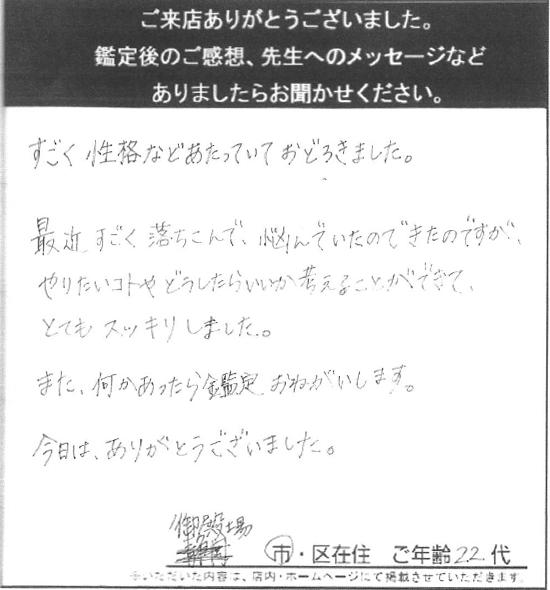 ご来店ありがとうございました。
鑑定後のご感想、先生へのメッセージなど
ありましたらお聞かせください。
すごく性格などあたっていておどろきました。
最近すごく落ちこんで、悩んでいたのできたのですが、
やりたいコトやどうしたらいいか考えることができて、
とてもスッキリしました。
また、何かあったら鑑定おねがいします。
今日は、ありがとうございました。
御殿場
市・区在住 ご年齢22代
※いただいた内容は、店内・ホームページにて掲載させていただきます。